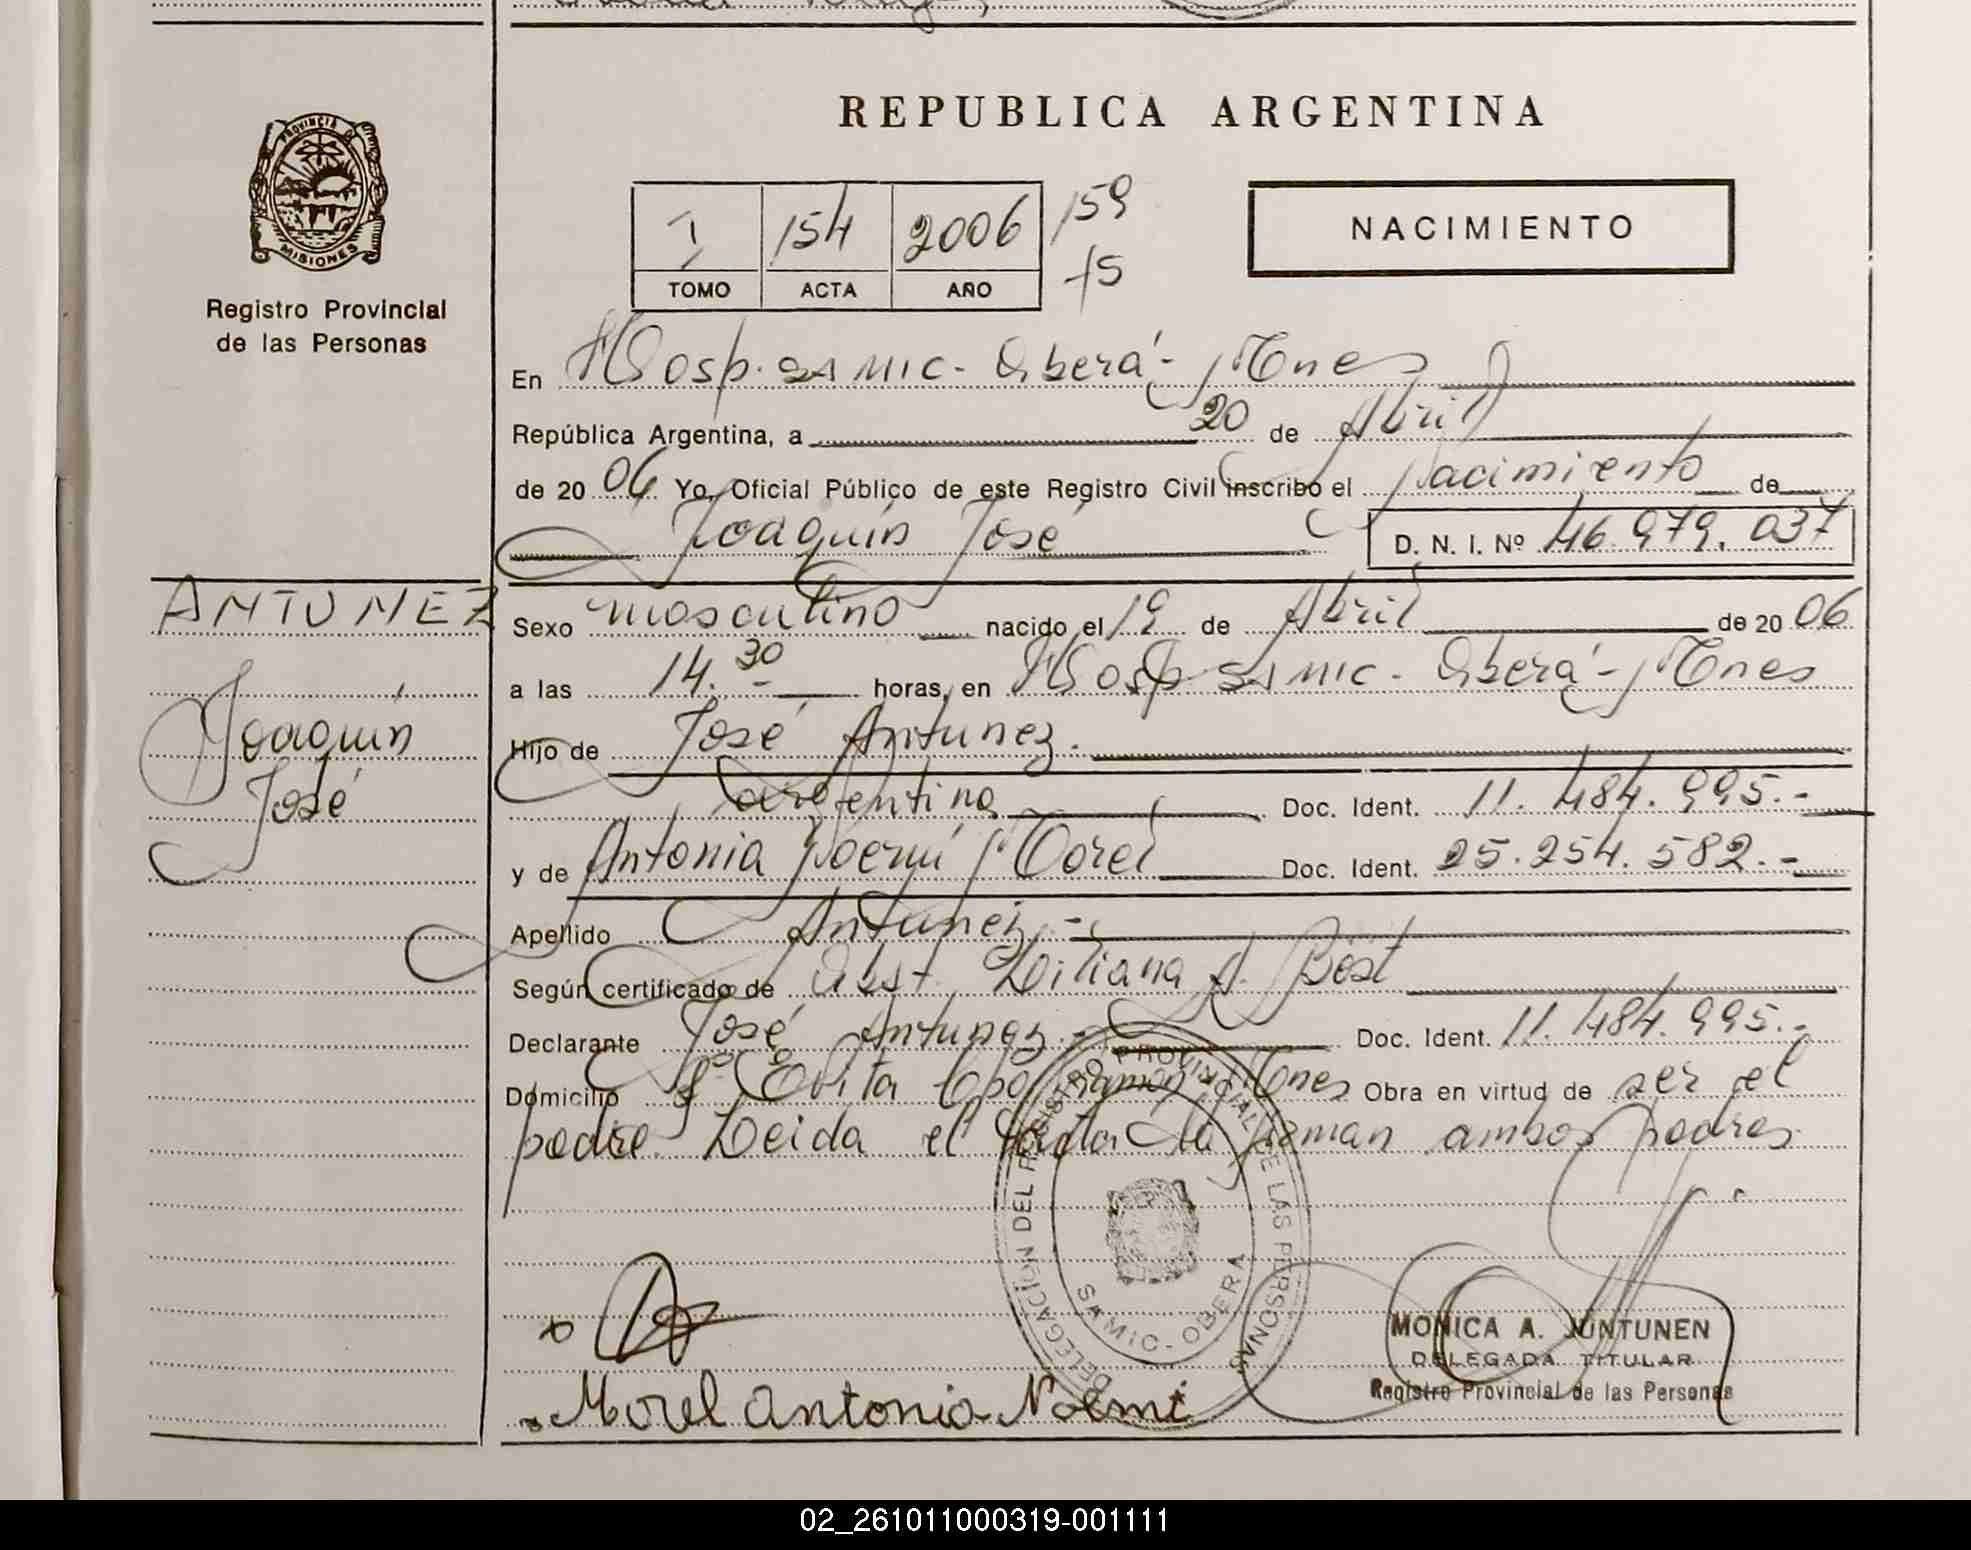 REPUBLICA ARGENTINA
PROVINCIA DE
MISIONES
Registro Provincial
de las Personas
I 154 2006 159
TOMO ACTA AÑO 75
NACIMIENTO
En Hosp. SAMIC - Oberá - Mnes
República Argentina, a 20 de Abril
de 20 06 Yo, Oficial Público de este Registro Civil inscribo el Nacimiento de
Joaquín José D. N. I. Nº 46.979.037
ANTUNEZ
Joaquín
José
Sexo masculino nacido el 19 de Abril de 20 06
a las 14.30 horas, en Hosp SAMIC - Oberá - Mnes
Hijo de José Antunez.
argentino Doc. Ident. 11.484.995.-
y de Antonia Noemí Morel Doc. Ident. 25.254.582.-
Apellido Antunez.-
Según certificado de Obst. Liliana A. Bost
Declarante José Antunez.- Doc. Ident. 11.484.995.-
Domicilio Bº Evita Cpo Ramón Mnes Obra en virtud de ser el
padre. Leida el acta la firman ambos padres
DELEGACIÓN DEL REGISTRO PROVINCIAL DE LAS PERSONAS
SAMIC - OBERA
Morel Antonia Noemi
MONICA A. JUNTUNEN
DELEGADA TITULAR
Registro Provincial de las Personas
02_261011000319-001111